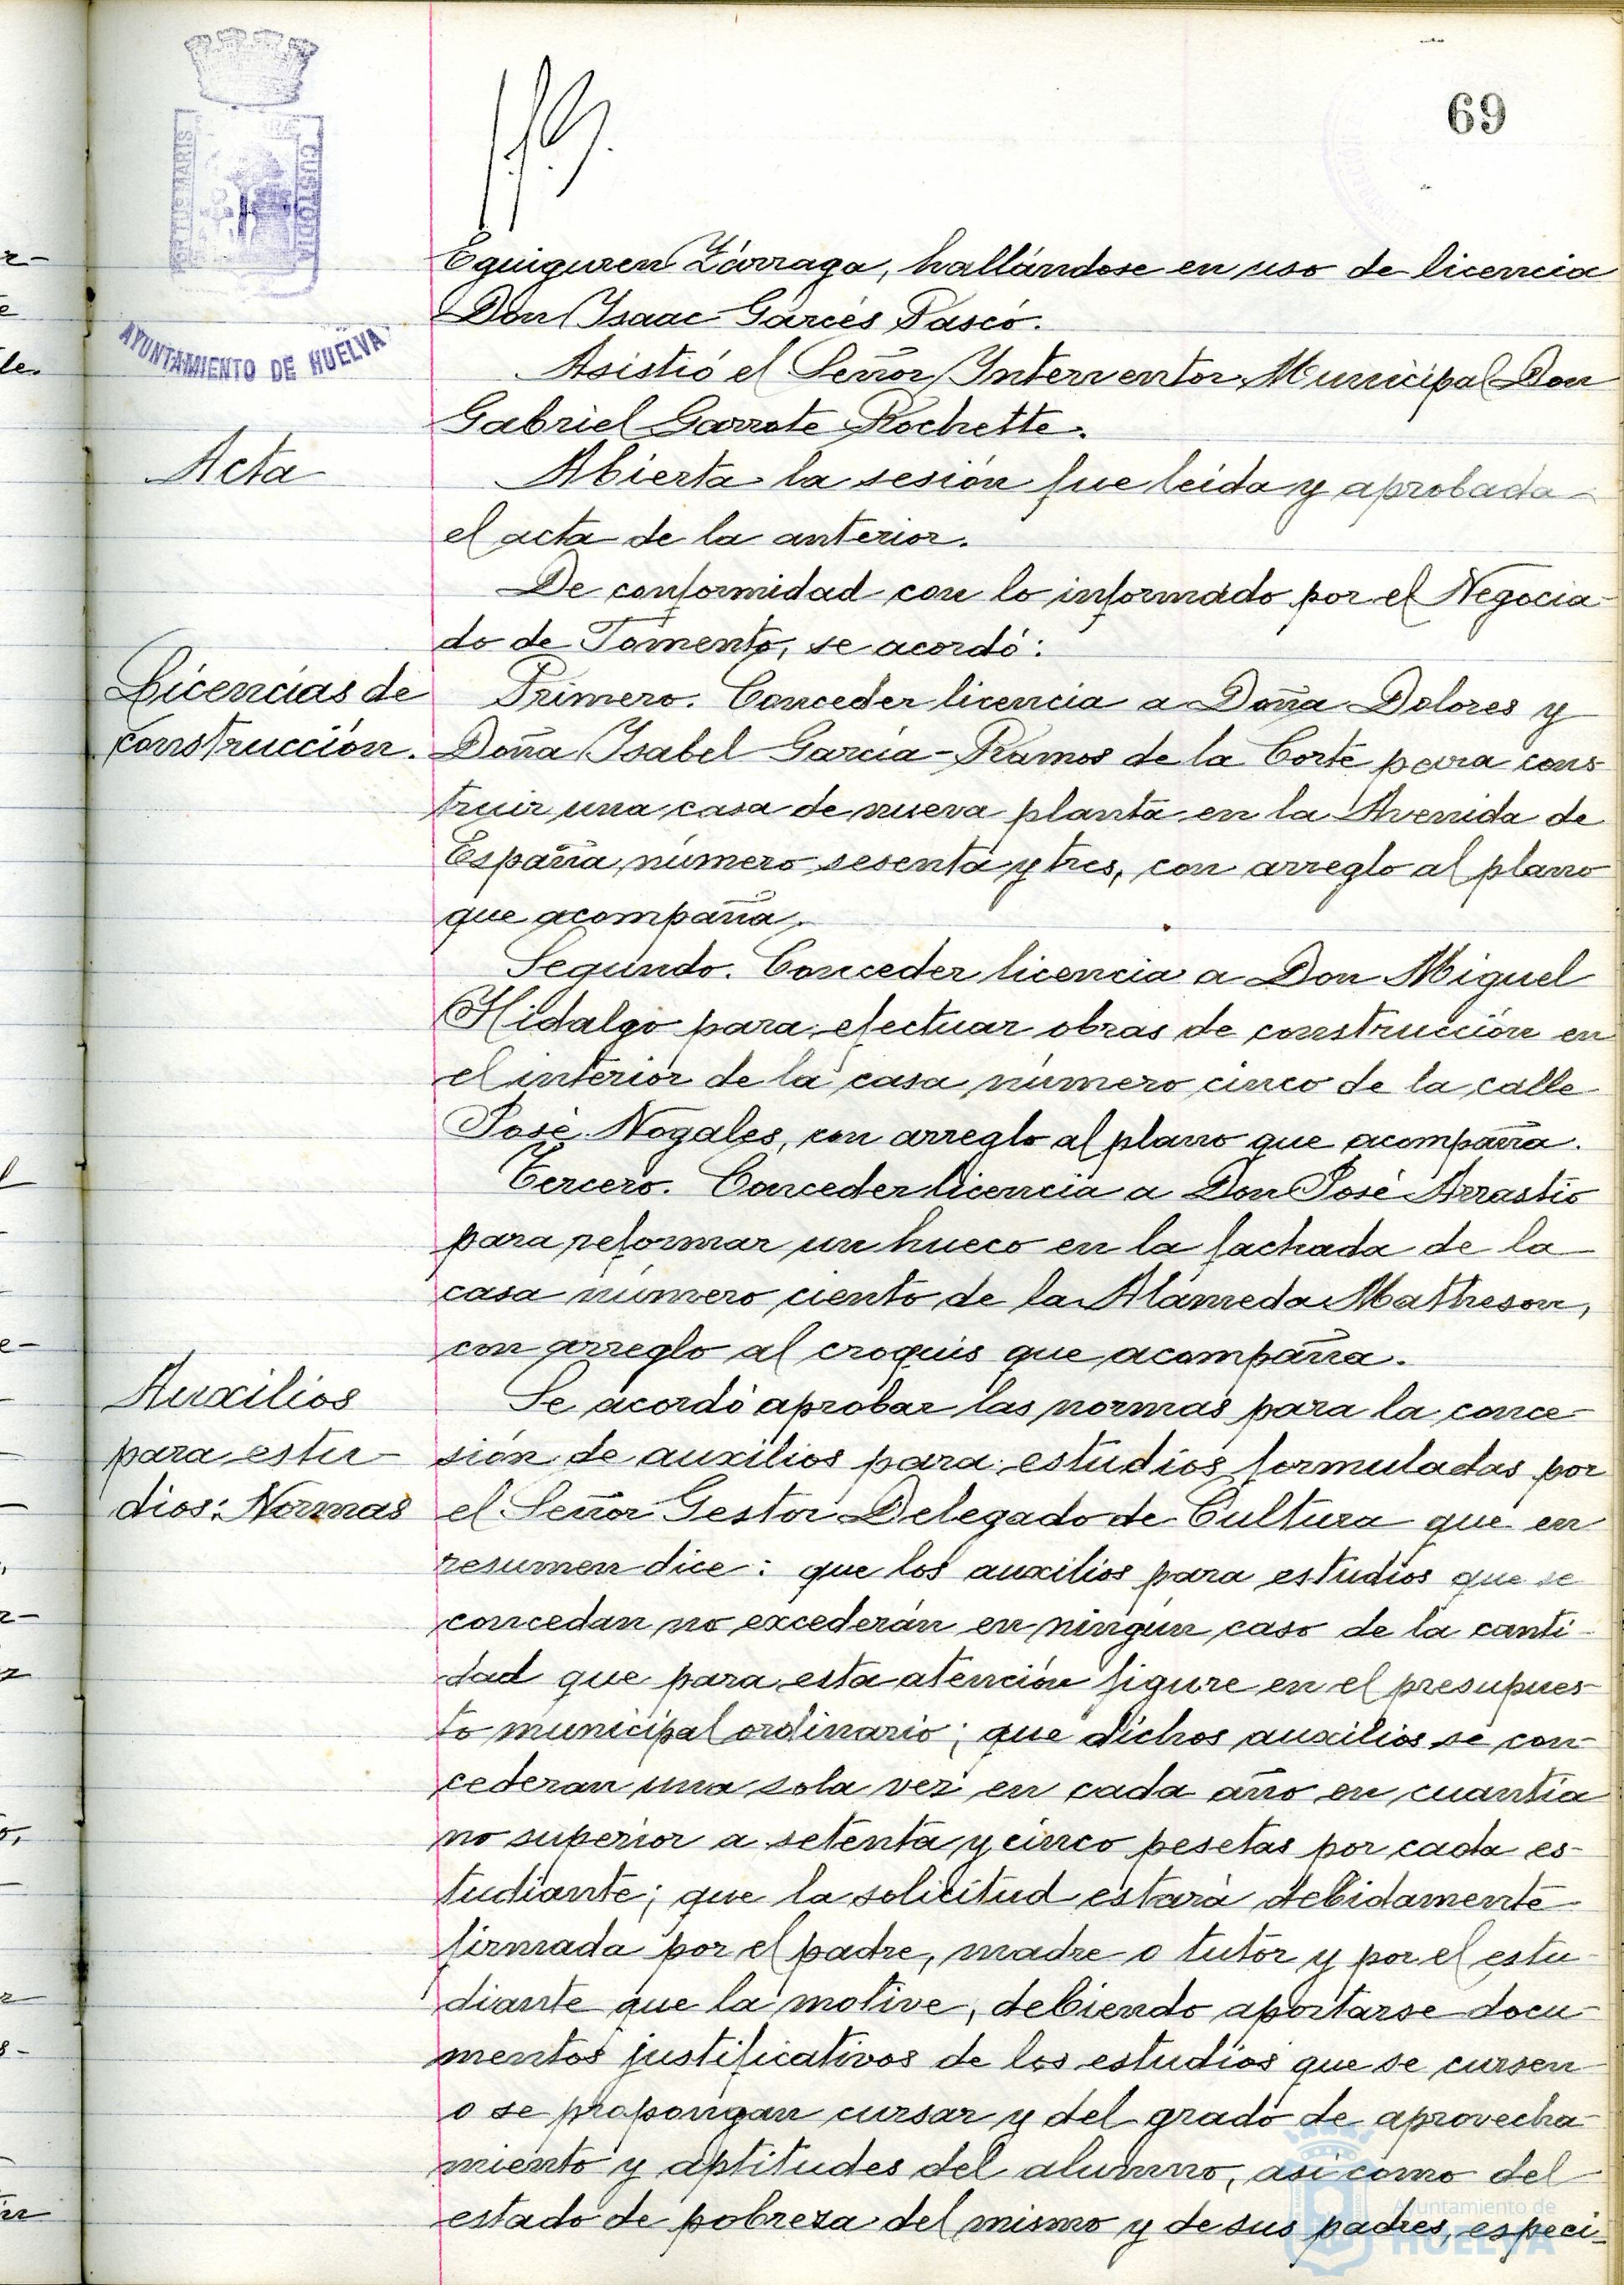 69
AYUNTAMIENTO DE HUELVA
Eguiguren Zárraga, hallándose en uso de licencia
Don Isaac Garcés Pascó.
Asistió el Señor Interventor Municipal Don
Gabriel Garrote Rochette.
Acta
Abierta la sesión fue leida y aprobada
el acta de la anterior.
De conformidad con lo informado por el Negocia-
do de Fomento, se acordó:
Licencias de
construcción.
Primero. Conceder licencia a Doña Dolores y
Doña Isabel García-Ramos de la Corte para cons-
truir una casa de nueva planta en la Avenida de
España, número sesenta y tres, con arreglo al plano
que acompaña.
Segundo. Conceder licencia a Don Miguel
Hidalgo para efectuar obras de construcción en
el interior de la casa número cinco de la calle
José Nogales, con arreglo al plano que acompaña.
Tercero. Conceder licencia a Don José Arrastio
para reformar un hueco en la fachada de la
casa número ciento de la Alameda Matheson,
con arreglo al croquis que acompaña.
Auxilios
para estu-
dios: Normas
Se acordó aprobar las normas para la conce-
sión de auxilios para estudios formuladas por
el Señor Gestor Delegado de Cultura que en
resumen dice: que los auxilios para estudios que se
concedan no excederán en ningún caso de la canti-
dad que para esta atención figure en el presupues-
to municipal ordinario; que dichos auxilios se con-
cederan una sola vez en cada año en cuantía
no superior a setenta y cinco pesetas por cada es-
tudiante; que la solicitud estará debidamente
firmada por el padre, madre o tutor y por el estu-
diante que la motive, debiendo aportarse docu-
mentos justificativos de los estudios que se cursen
o se propongan cursar y del grado de aprovecha-
miento y aptitudes del alumno, asi como del
estado de pobreza del mismo y de sus padres, especi-
Ayuntamiento de
HUELVA